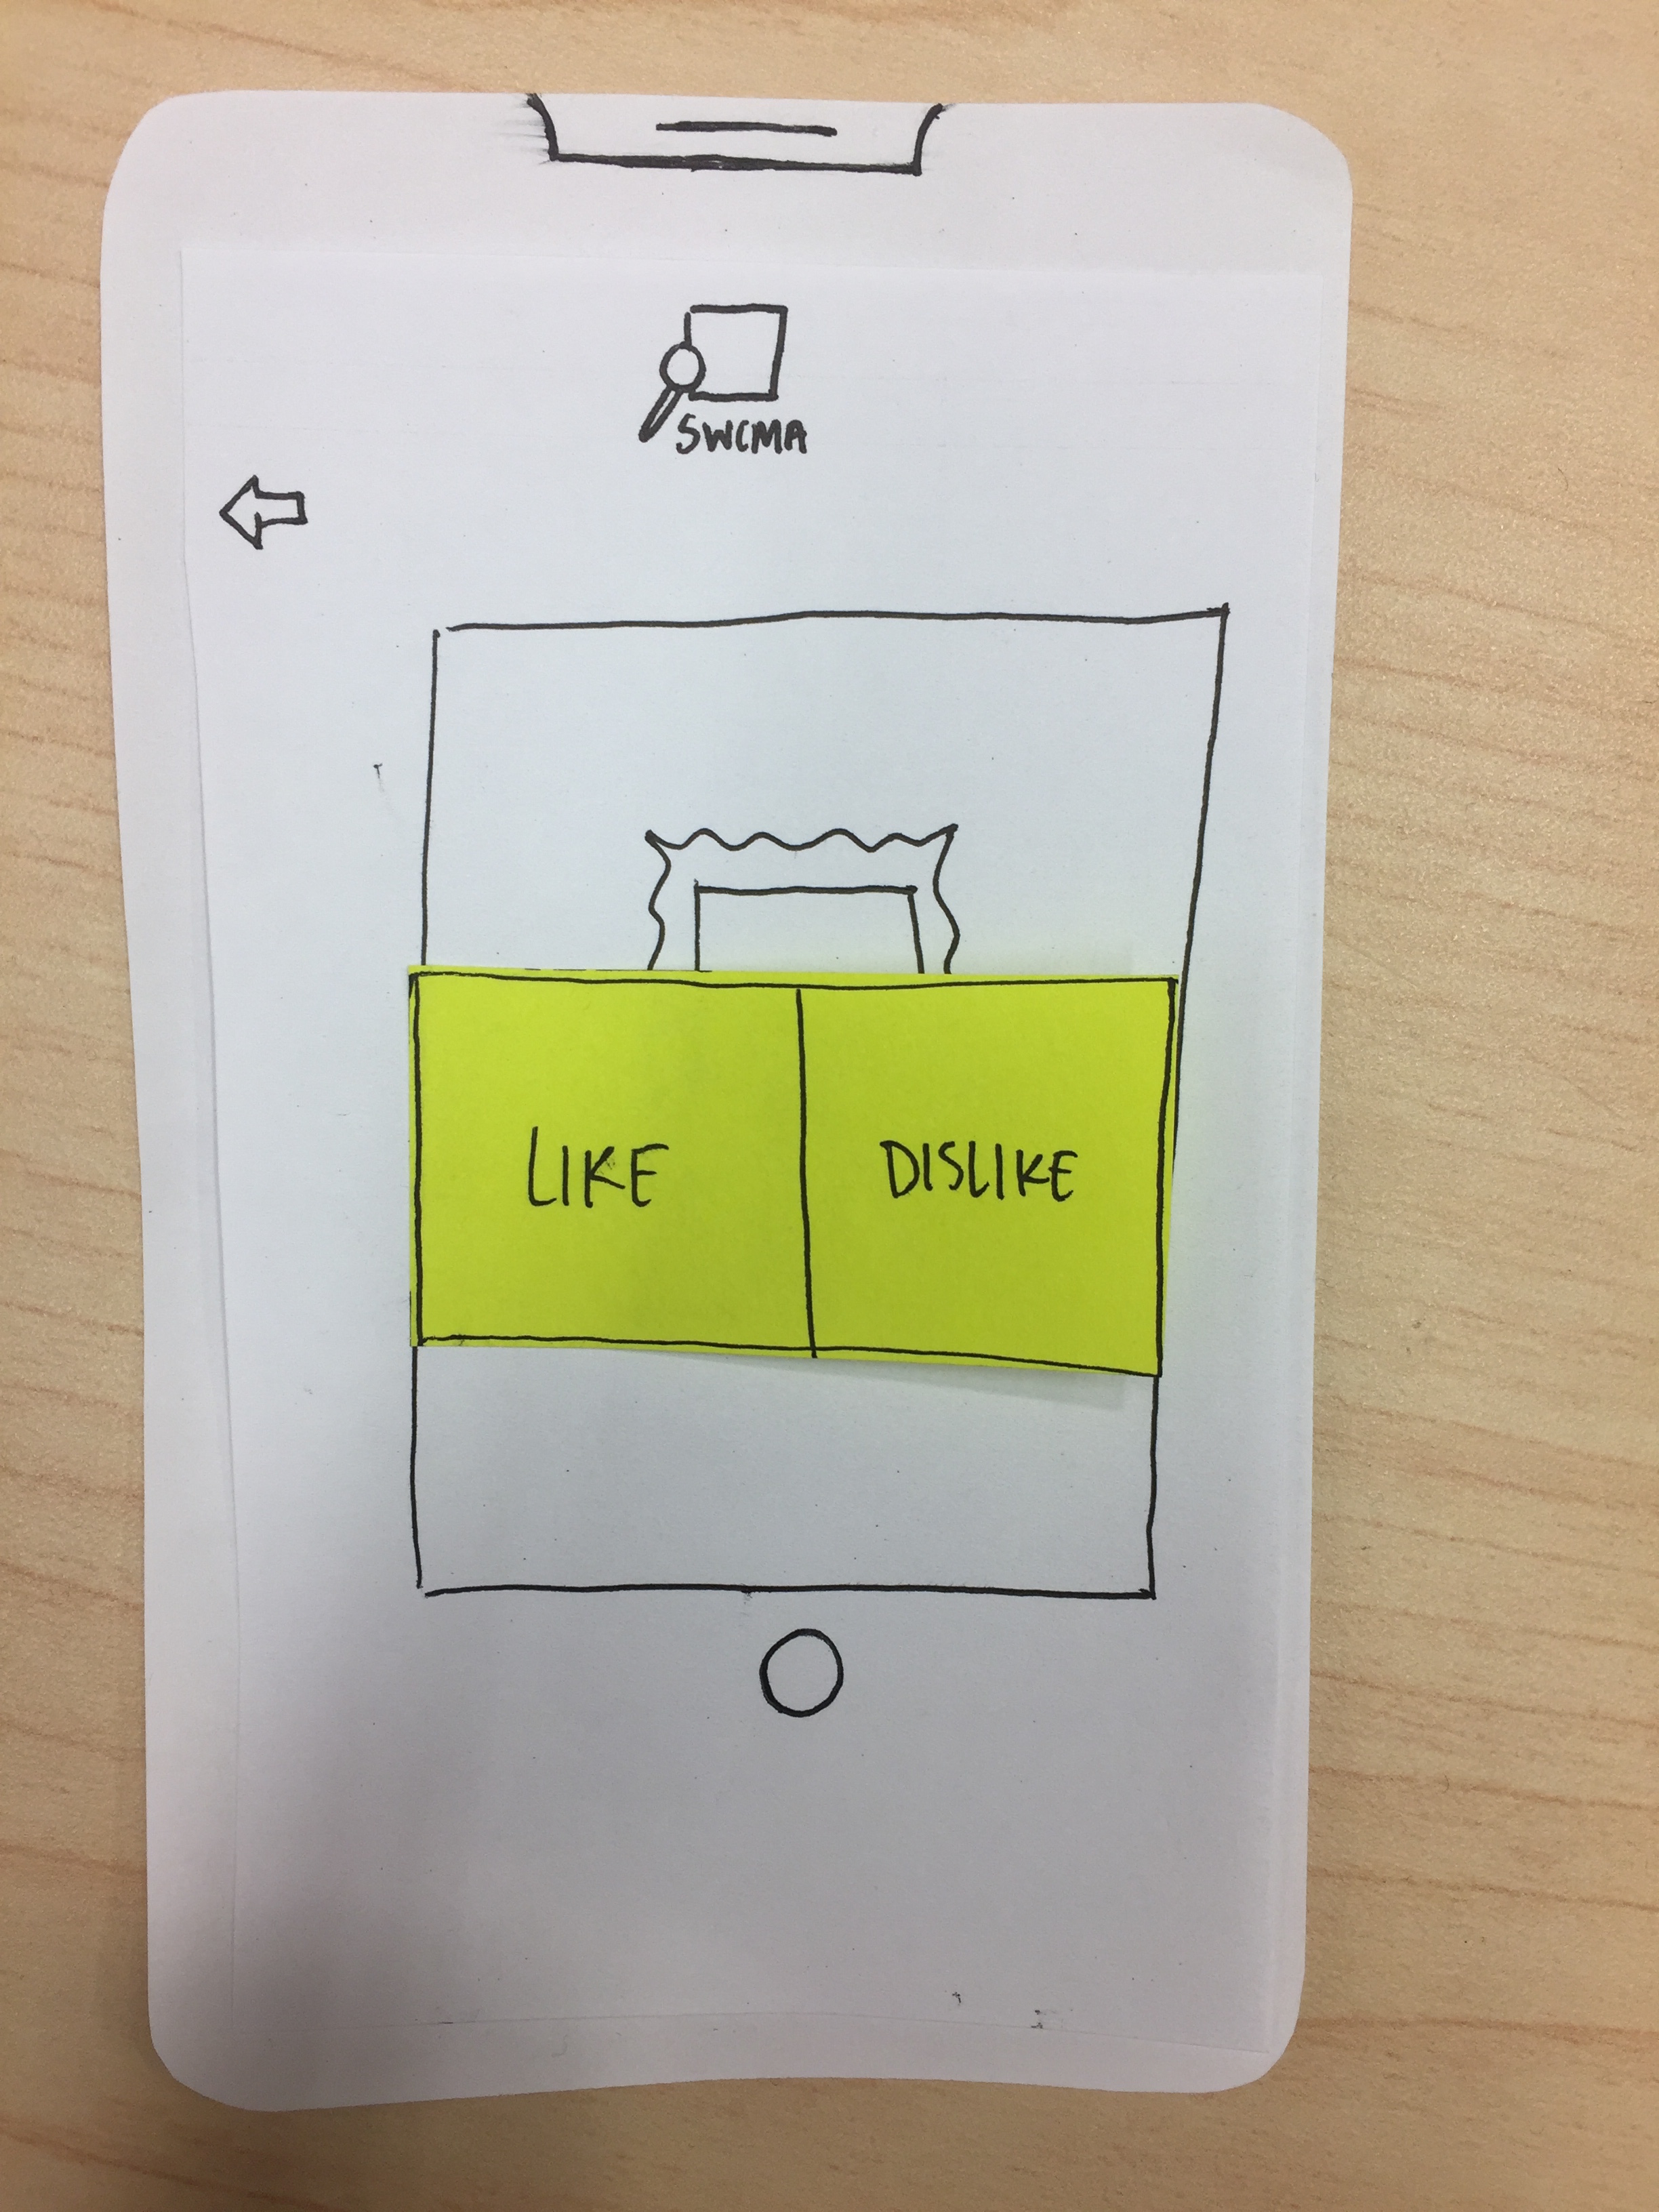 SWCMA
LIKE
DISLIKE